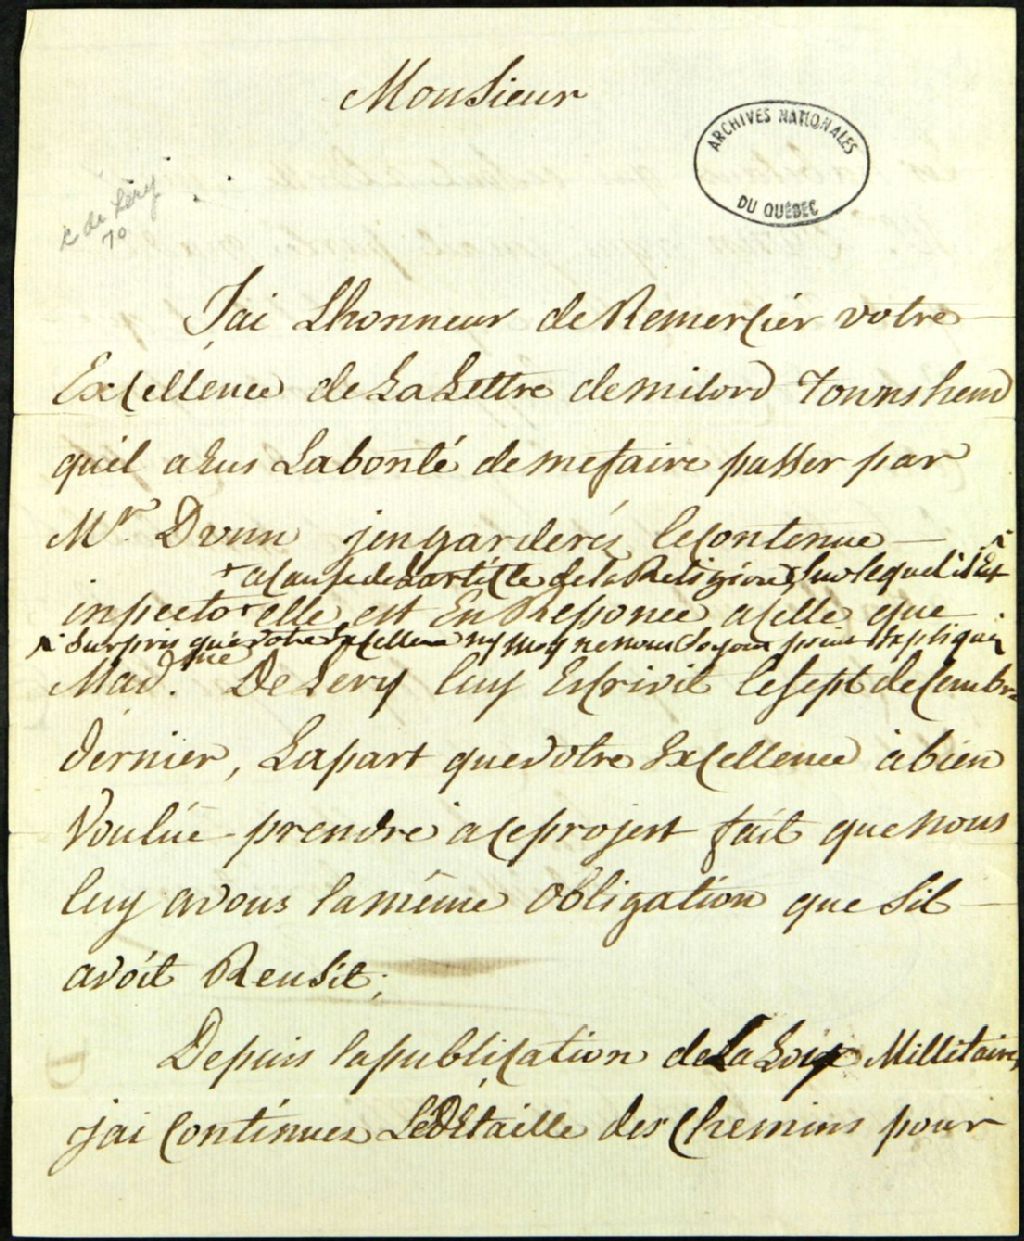 Monsieur
ARCHIVES NATIONALES
DU QUÉBEC
C de Léry
70
Jai Lhonneur de Remercier votre
Excellence de La Lettre de milord Townshend
quil a Eus La bonté de me faire passer par
Mr. Dunn jen garderés le contenue
+ a cause de L'article de la Religion, sur lequel il Est
in pecto + elle est En Responce a celle que
surpris que votre Excellence ny moy ne nous soyons point Expliqué
Mad.me De Lery luy Escrivit le sept decembre
dernier, La part que votre Excellence à bien
Voulüe prendre a ce projest fait que nous
luy avons la même Obligation que sil
avoit Reusit;
Depuis la publication de La Loix Millitaire,
jai continues Le Détaille des Chemins pour